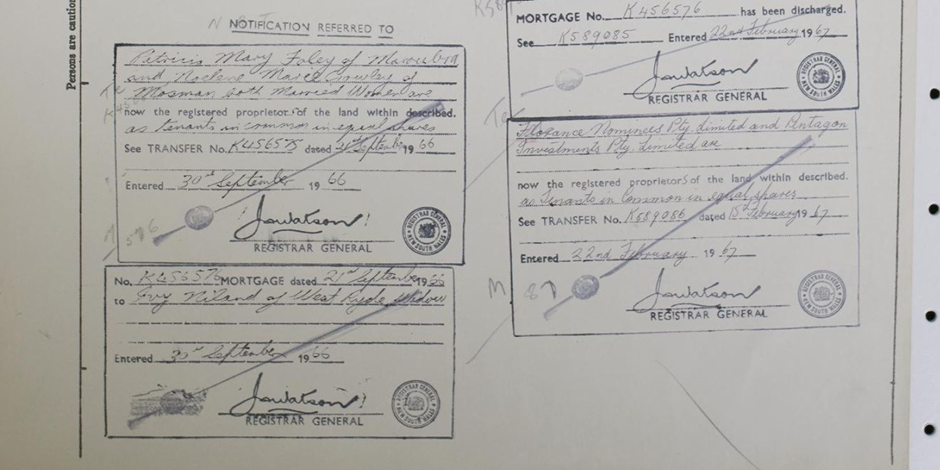 Persons are cautio
NOTIFICATION REFERRED TO
Patricia Mary Foley of Maroubra
and Noelene Marie Crowley of
Mosman both Married Women are
now the registered proprietors of the land within described.
as tenants in common in equal shares
See TRANSFER No. K456575 dated 21st September 1966
Entered 30th September 1966
REGISTRAR GENERAL
REGISTRAR GENERAL
NEW SOUTH WALES
No. K456576 MORTGAGE dated 21st September 1966
to Niland of West Ryde Widow
Entered 30th September 1966
REGISTRAR GENERAL
REGISTRAR GENERAL
NEW SOUTH WALES
K58
MORTGAGE No. K456576 has been discharged.
See K589085 Entered 22nd February 1967
JWatson
REGISTRAR GENERAL
REGISTRAR GENERAL
NEW SOUTH WALES
Florance Nominees Pty. Limited and Pentagon
Investments Pty. Limited are
now the registered proprietors of the land within described.
as Tenants in Common in equal shares
See TRANSFER No. K589086 dated February 1967
Entered 22nd February 1967
JWatson
REGISTRAR GENERAL
REGISTRAR GENERAL
NEW SOUTH WALES
M 87